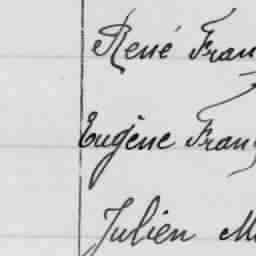 René Fran
Eugène Franç
Julien M